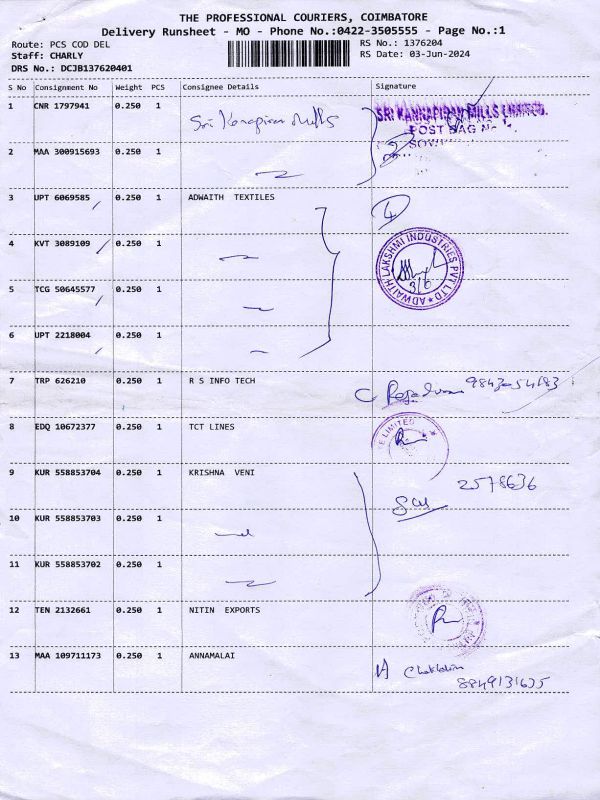 THE PROFESSIONAL COURIERS, COIMBATORE
Delivery Runsheet - MO - Phone No.:0422-3505555 - Page No.:1
Route: PCS COD DEL
RS No.: 1376204
Staff: CHARLY
RS Date: 03-Jun-2024
DRS No.: DCJB137620401
S No Consignment No Weight PCS Consignee Details Signature
1 CNR 1797941 0.250 1 Sri Kanapiran Mills SRI KANNAPIRAN MILLS LIMITED.
POST BAG No 1.
2 MAA 300915693 0.250 1
3 UPT 6069585 0.250 1 ADWAITH TEXTILES
4 KVT 3089109 0.250 1 ADWAITH LAKSHMI INDUSTRIES PVT LTD
3/6
5 TCG 50645577 0.250 1
6 UPT 2218004 0.250 1
7 TRP 626210 0.250 1 R S INFO TECH
8 EDQ 10672377 0.250 1 TCT LINES LIMITED
9 KUR 558853704 0.250 1 KRISHNA VENI 2578636
10 KUR 558853703 0.250 1
11 KUR 558853702 0.250 1
12 TEN 2132661 0.250 1 NITIN EXPORTS
13 MAA 109711173 0.250 1 ANNAMALAI
8849131635